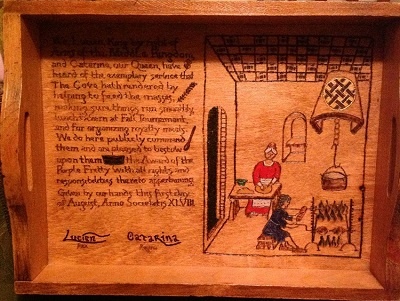 and Caterina, our Queen, have
heard of the exemplary service that
The Cova hath rendered by
helping to feed the masses,
making sure things run smoothly
lunch tavern at Fall Tournament,
and for organizing royalty meals.
We do here publicly commend
them and are pleased to bestow
upon them the Award of the
Purple Fretty with all rights and
responsibilities thereto appertaining.
Given by our hands this first day
of August, Anno Societatis XLVIII
Lucien Caterina
Rex Regina